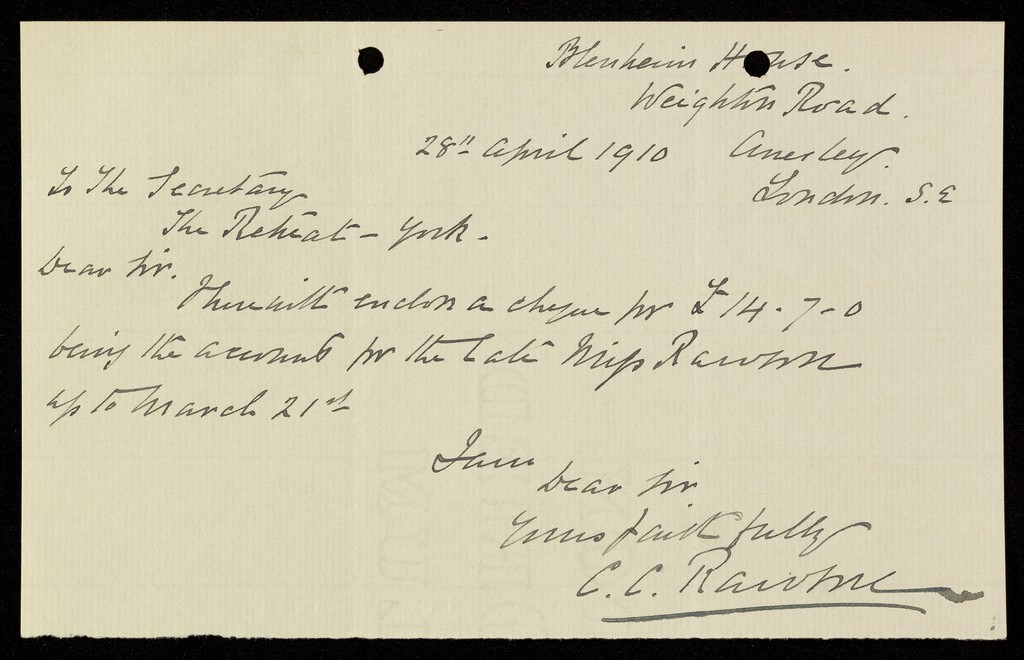 Blenheim House.
Weighton Road.
28th April 1910 Anerley.
London. S.E
To The Secretary
The Retreat - York.
Dear Sir.
I herewith enclose a cheque for £14-7-0
being the account for the late Miss Rawson
up to March 21st
I am
Dear Sir
Yours faithfully
C.C. Rawson